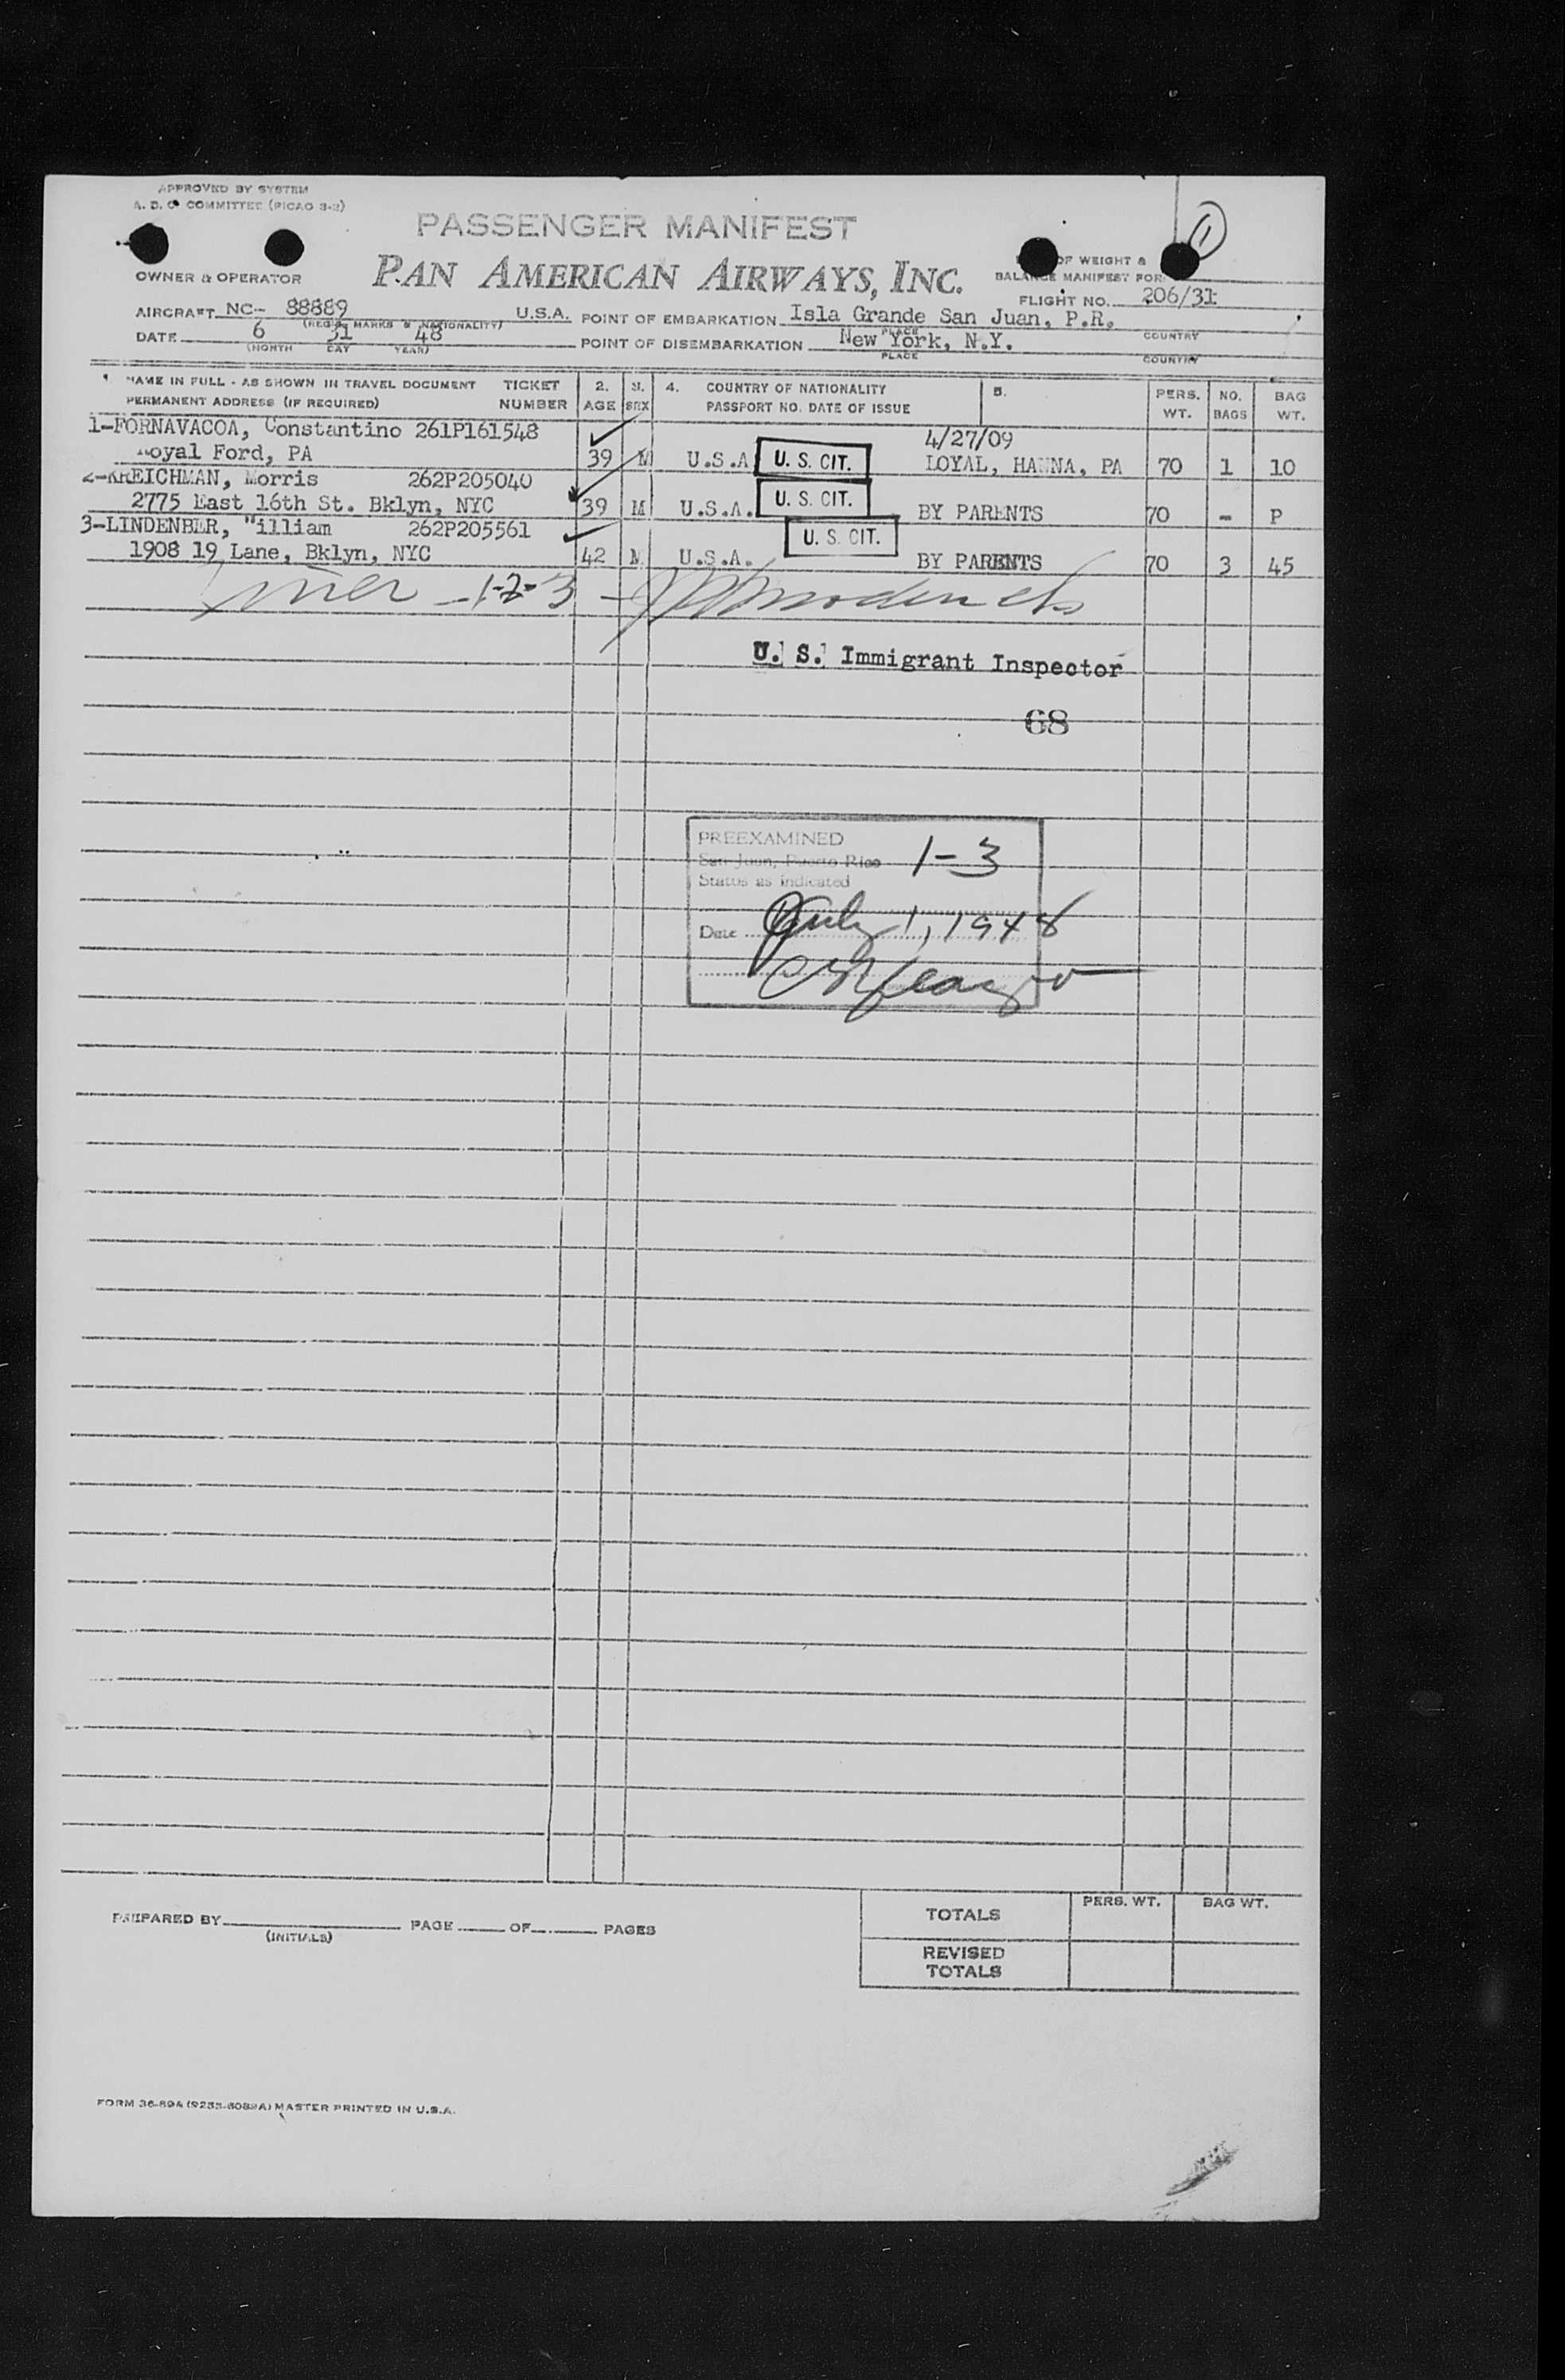 APPROVED BY SYSTEM
A. D. C. COMMITTEE (PICAO 3-2)
1
PASSENGER MANIFEST
OF WEIGHT &
OWNER & OPERATOR PAN AMERICAN AIRWAYS, INC. BALANCE MANIFEST FOR
FLIGHT NO. 206/31
AIRCRAFT NC- 88889 U.S.A. POINT OF EMBARKATION Isla Grande San Juan, P.R.
(REGIS. MARKS & NATIONALITY) PLACE COUNTRY
DATE 6 31 48 POINT OF DISEMBARKATION New York, N.Y.
(MONTH DAY YEAR) PLACE COUNTRY
NAME IN FULL - AS SHOWN IN TRAVEL DOCUMENT TICKET 2. 3. 4. COUNTRY OF NATIONALITY 5. PERS. NO. BAG
PERMANENT ADDRESS (IF REQUIRED) NUMBER AGE SEX PASSPORT NO. DATE OF ISSUE WT. BAGS WT.
1-FORNAVACOA, Constantino 261P161548 4/27/09
Loyal Ford, PA 39 M U.S.A U. S. CIT. LOYAL, HANNA, PA 70 1 10
2-KREICHMAN, Morris 262P205040
2775 East 16th St. Bklyn, NYC 39 M U.S.A. U. S. CIT. BY PARENTS 70 - P
3-LINDENBER, "illiam 262P205561 U. S. CIT.
1908 19 Lane, Bklyn, NYC 42 M U.S.A. BY PARENTS 70 3 45
1-2-3
U. S. Immigrant Inspector
68
PREEXAMINED
San Juan, Puerto Rico 1-3
Status as indicated
Date July 1, 1948
TOTALS PERS. WT. BAG WT.
PREPARED BY PAGE OF PAGES
(INITIALS)
REVISED
TOTALS
FORM 36-89A (9233-6088A) MASTER PRINTED IN U.S.A.